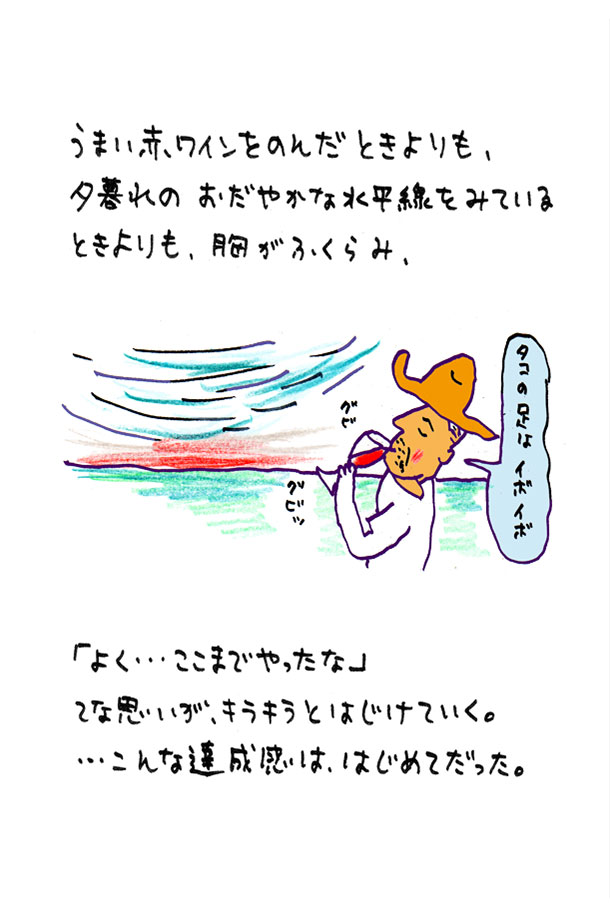 うまい赤ワインをのんだときよりも、
夕暮れの おだやかな水平線をみている
ときよりも、胸がふくらみ、
タコの足は イボイボ
グビ
グビッ
「よく…ここまでやったな」
てな思いが、キラキラとはじけていく。
…こんな達成感は、はじめてだった。